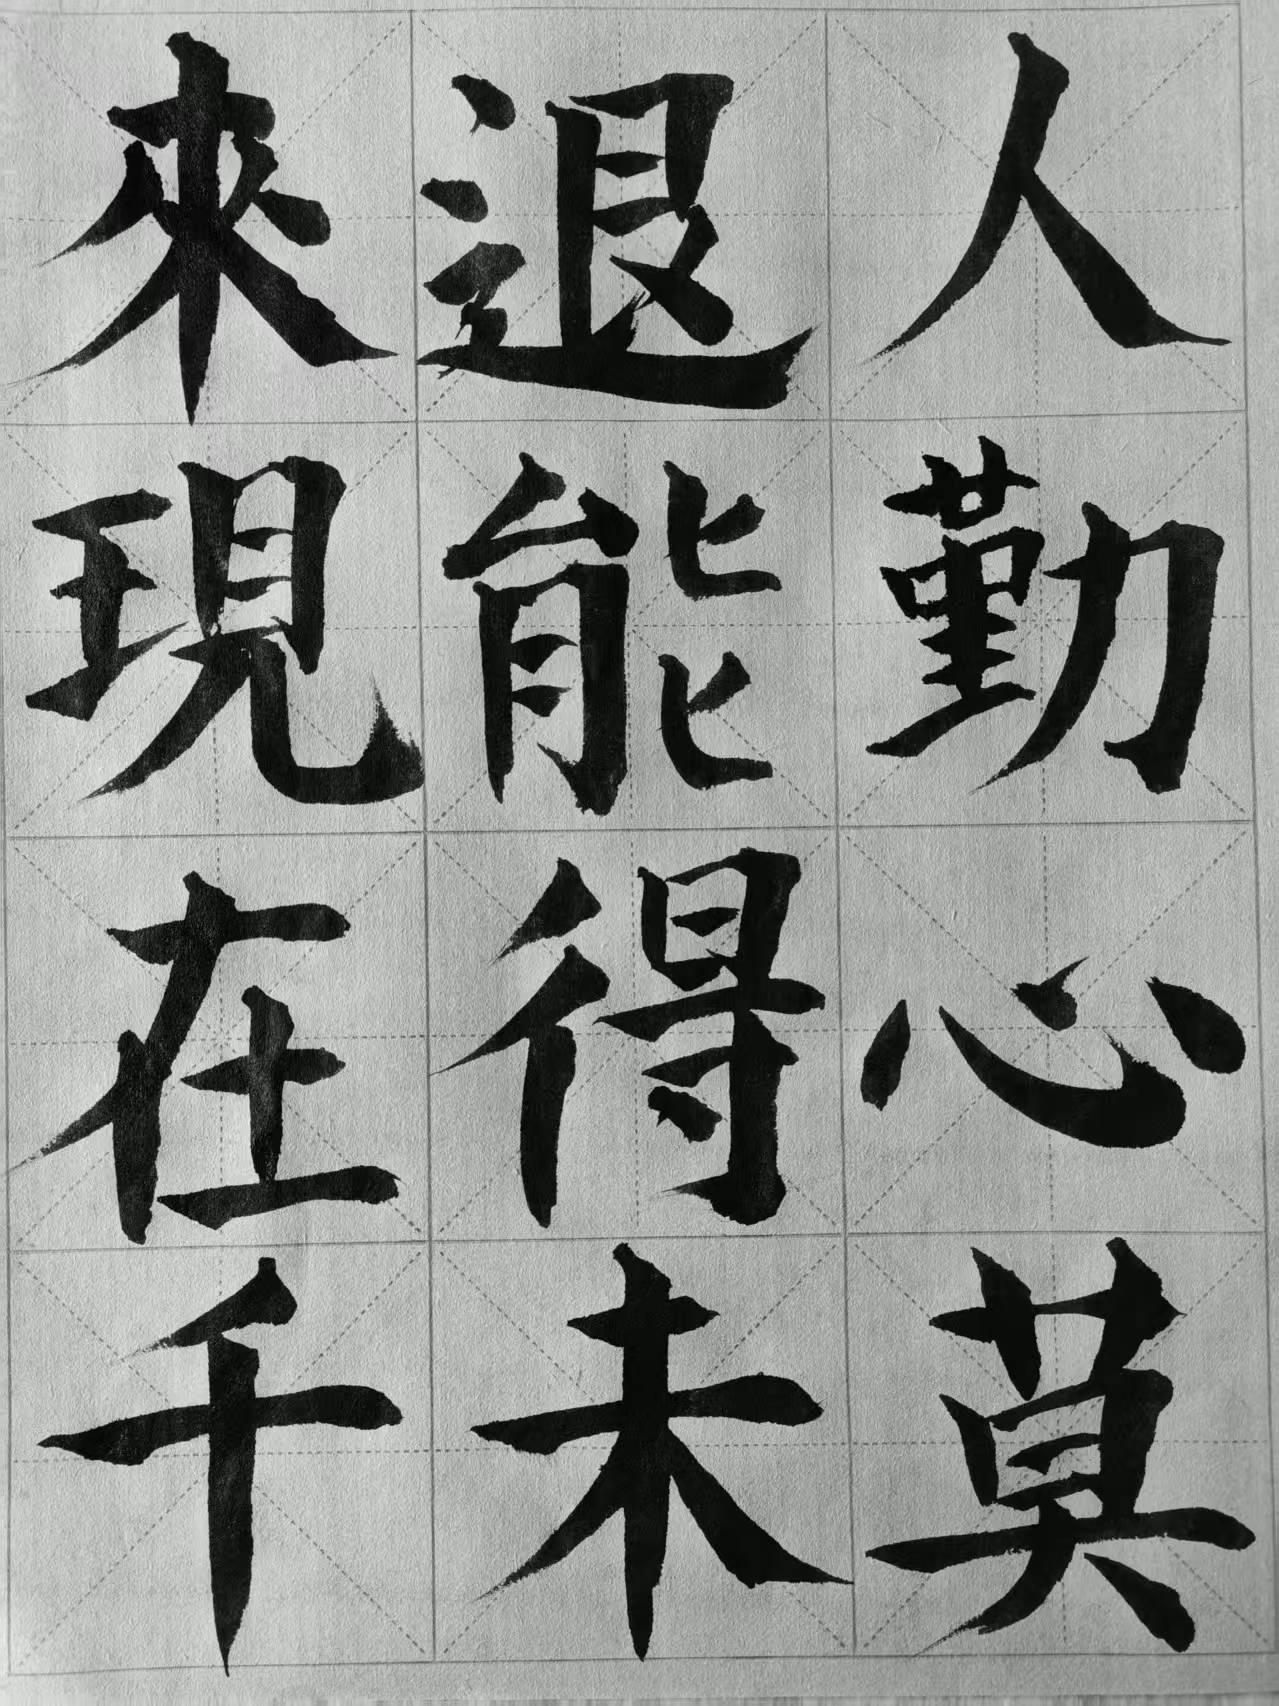 人勤心莫
退能得未
來現在千